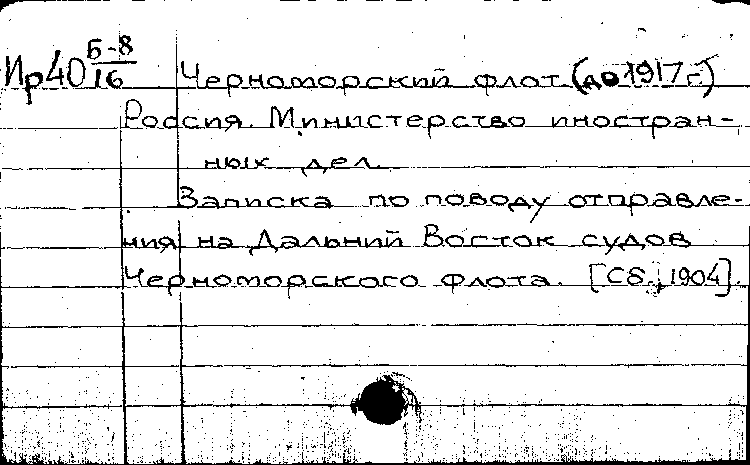 Ир40 Б-8/16 Черноморский флот (до 1917 г.)
Россия. Министерство иностран-
ных дел.
Записка по поводу отправле-
ния на Дальний Восток судов
Черноморского флота. [Сб., 1904].